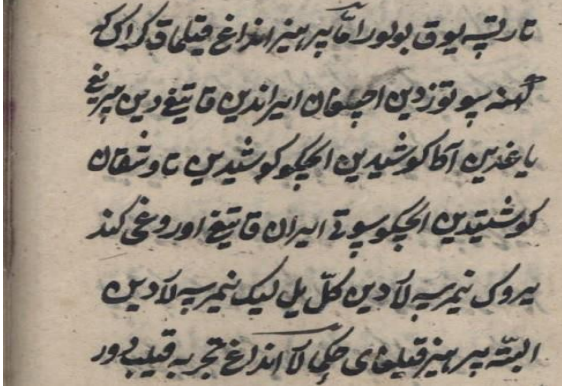 تارتپسه یوق بولور اما پرهیز انداغ قیلماق کراک که
کهنه سو توزدین اچیغان ایراندین قاتیغ دین
یاغدین آکا کوشیدین ایچکو کوشیدین تاوشقان
کوشیتیدین ایچکو سوتی ایران قاتیغ اوروغی کند
نیمرسه لاردین کل یل لیک نیمرسه لاردین
البته پرهیز قیلغای حکما لار انداغ تجربه قیلیب دور